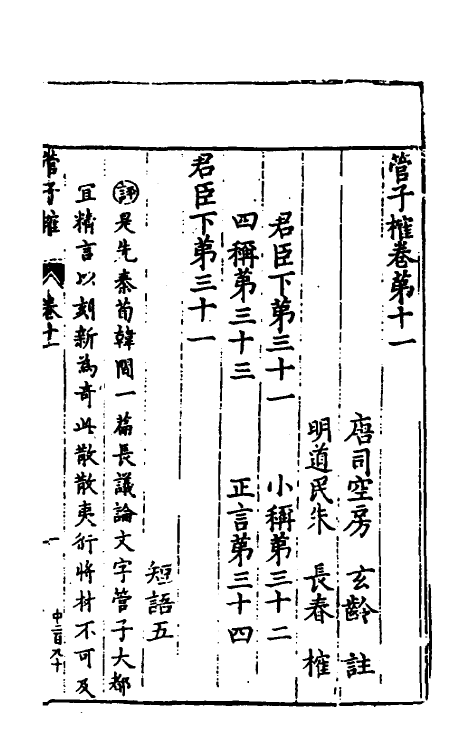 管子榷卷第十一
唐司空房　玄齡　註
明道民朱　長春　榷
君臣下第三十一　小稱第三十二
四稱第三十三　正言第三十四
君臣下第三十一
短語五
評是先秦荀韓間一篇長議論文字管子大都
冝精言以刻新為奇此散散夷衍將材不可及
管子榷　卷十一　一　中二百九十